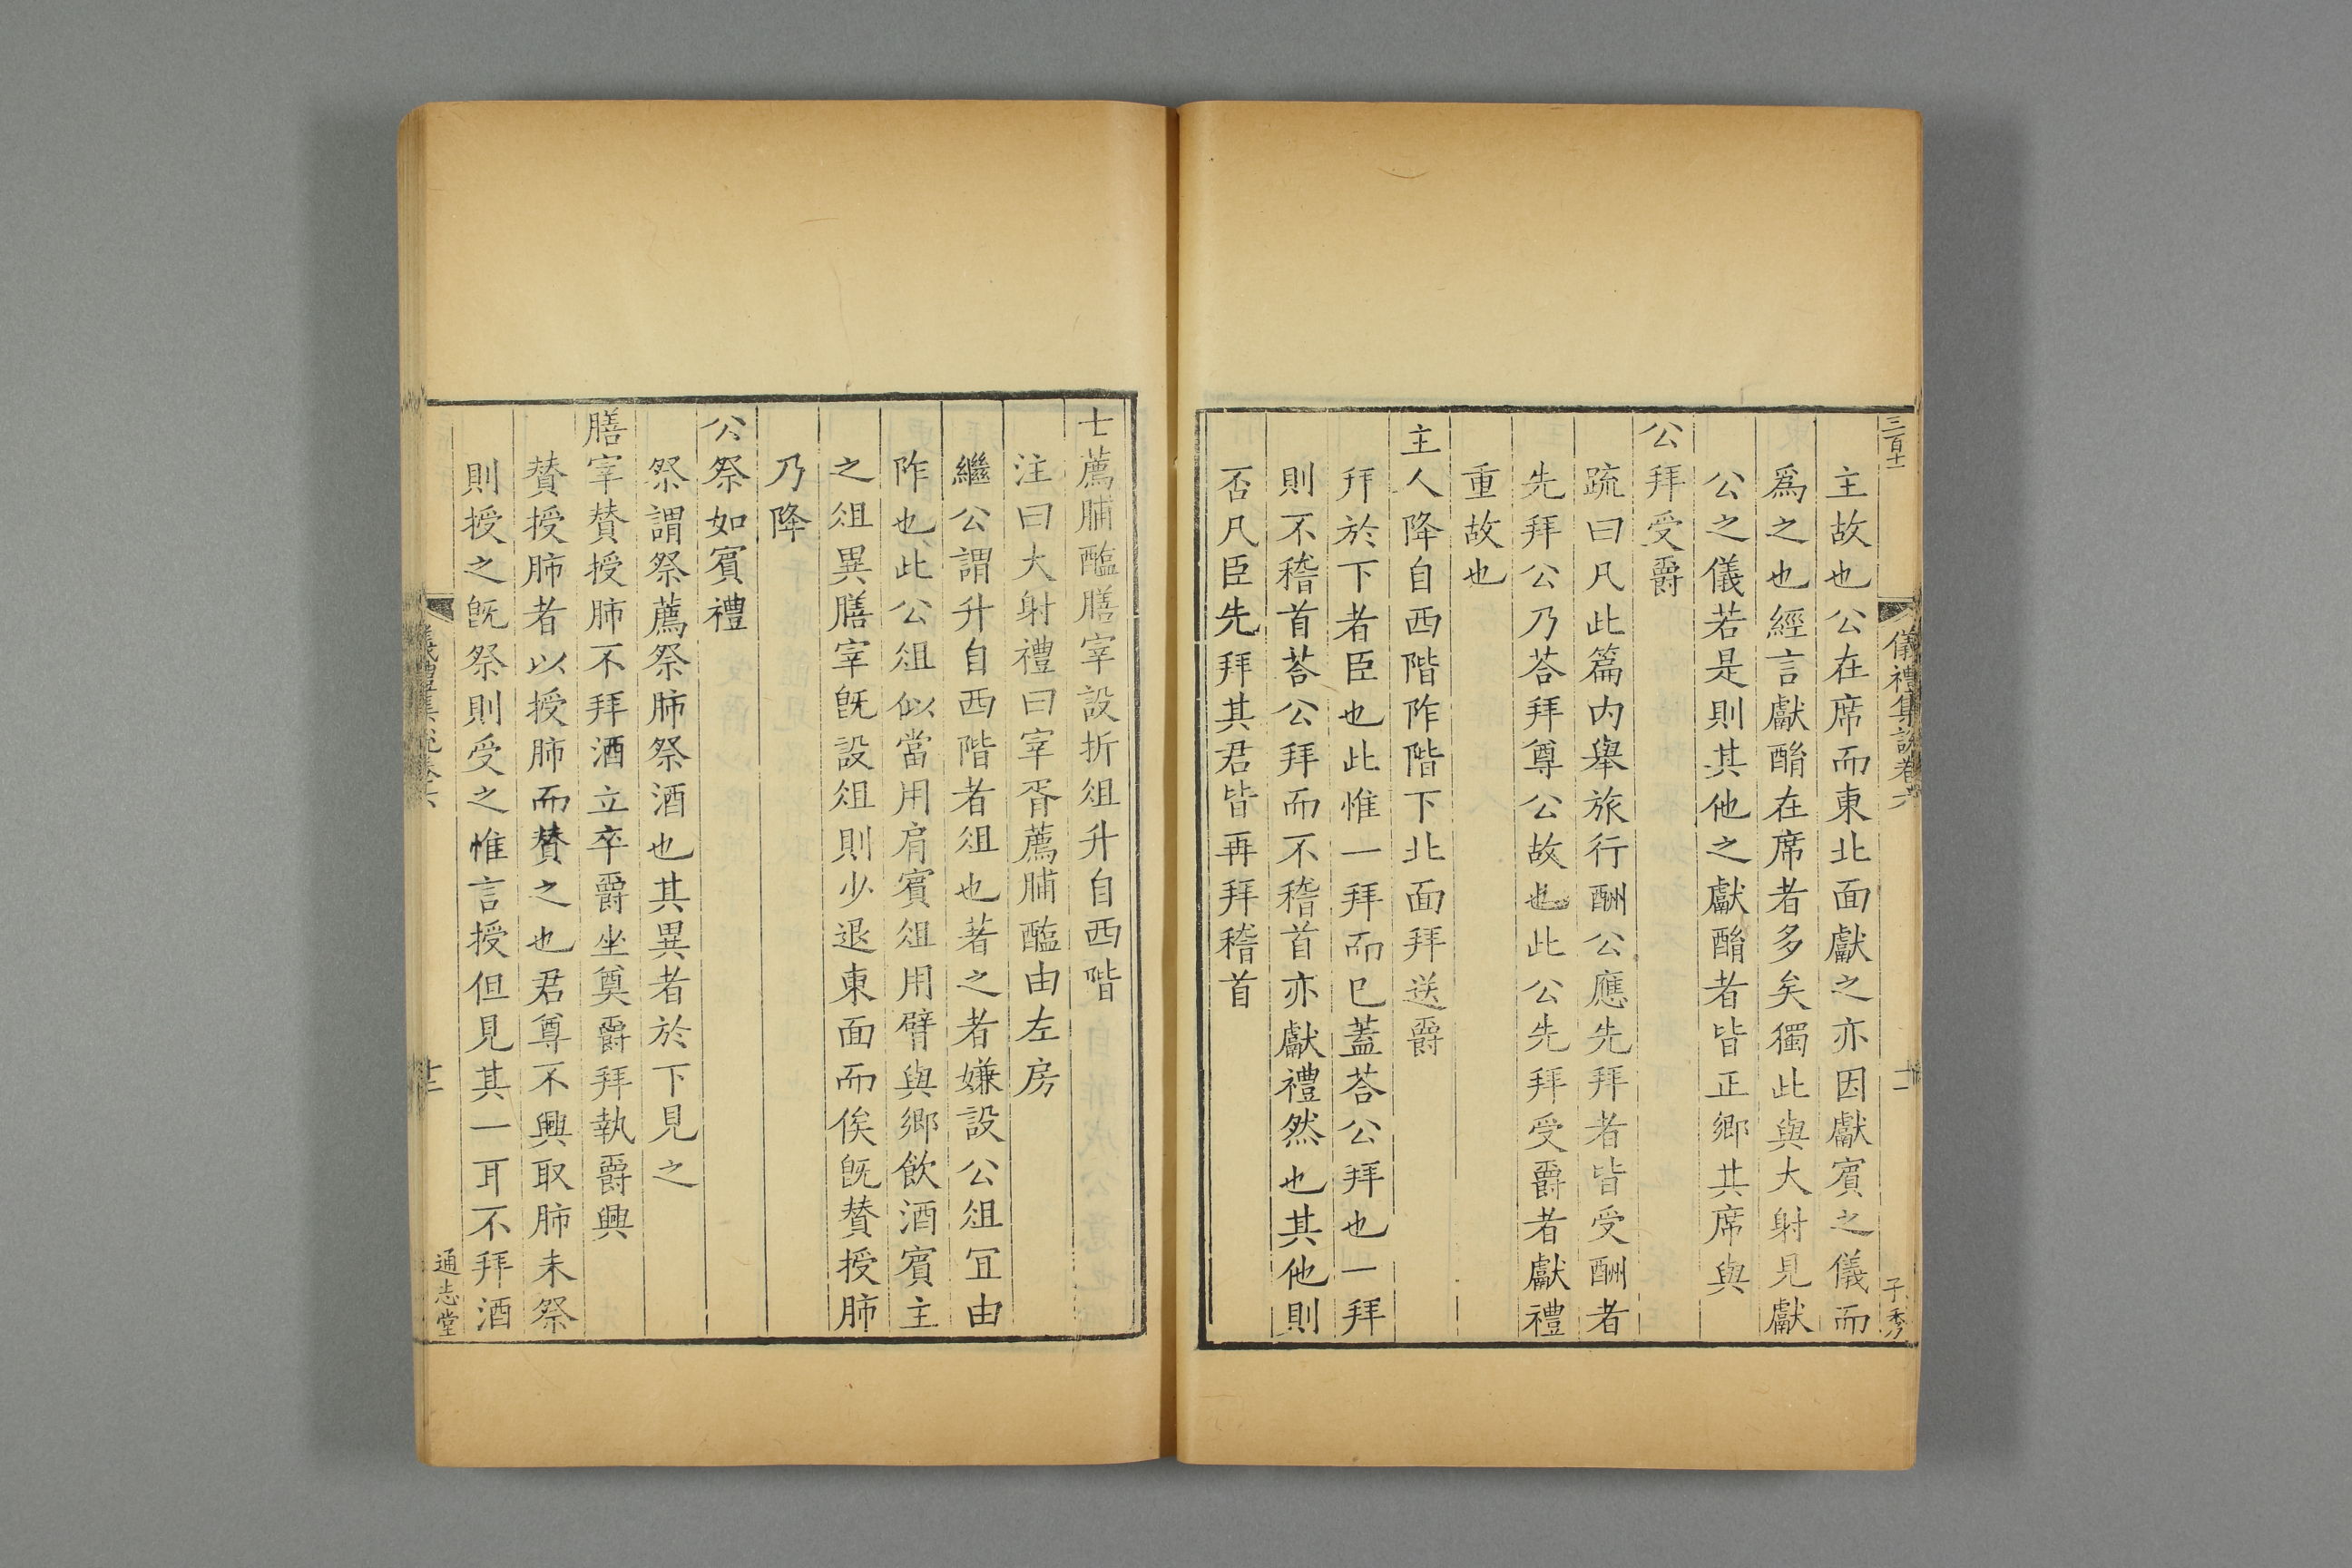 三百十一
儀禮集說卷六
十一
子秀
主故也公在席而東北面獻之亦因獻賓之儀而
爲之也經言獻酳在席者多矣獨此與大射見獻
公之儀若是則其他之獻酳者皆正鄉其席與
公拜受爵
疏曰凡此篇内舉旅行酬公應先拜者皆受酬者
先拜公乃荅拜尊公故也此公先拜受爵者獻禮
重故也
主人降自西階阼階下北面拜送爵
拜於下者臣也此惟一拜而已蓋荅公拜也一拜
則不稽首荅公拜而不稽首亦獻禮然也其他則
否凡臣先拜其君皆再拜稽首
士薦脯醢膳宰設折俎升自西階
注曰大射禮曰宰胥薦脯醢由左房
繼公謂升自西階者俎也著之者嫌設公俎宜由
阼也此公俎似當用肩賓俎用臂與鄉飲酒賓主
之俎異膳宰旣設俎則少退東面而俟旣贊授肺
乃降
公祭如賓禮
祭謂祭薦祭肺祭酒也其異者於下見之
膳宰贊授肺不拜酒立卒爵坐奠爵拜執爵興
贊授肺者以授肺而贊之也君尊不興取肺未祭
則授之旣祭則受之惟言授但見其一耳不拜酒
儀禮集說卷六
十二
通志堂